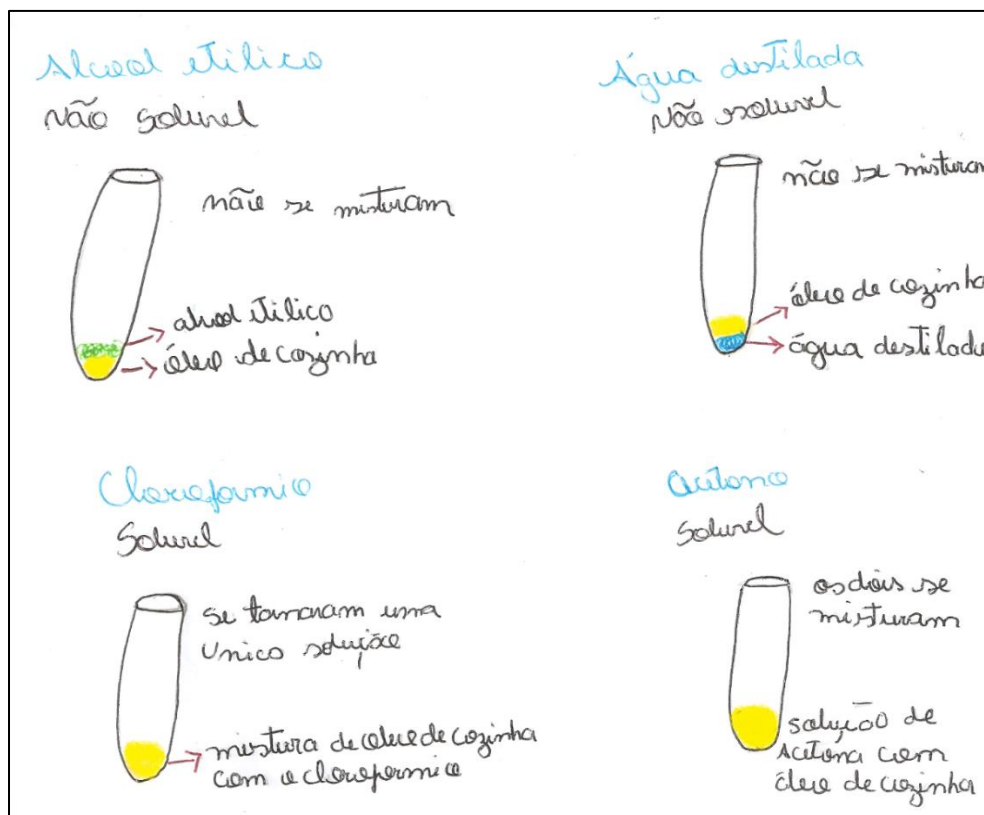 Alcool etilico
Não soluvel
não se misturam
alcool etilico
óleo de cozinha
Água destilada
Não soluvel
não se misturam
óleo de cozinha
água destilada
Cloroformio
Soluvel
se tornaram uma
unico solução
mistura de oleo de cozinha
com o cloroformio
acetona
Soluvel
os dois se
misturam
solução de
Acetona com
óleo de cozinha